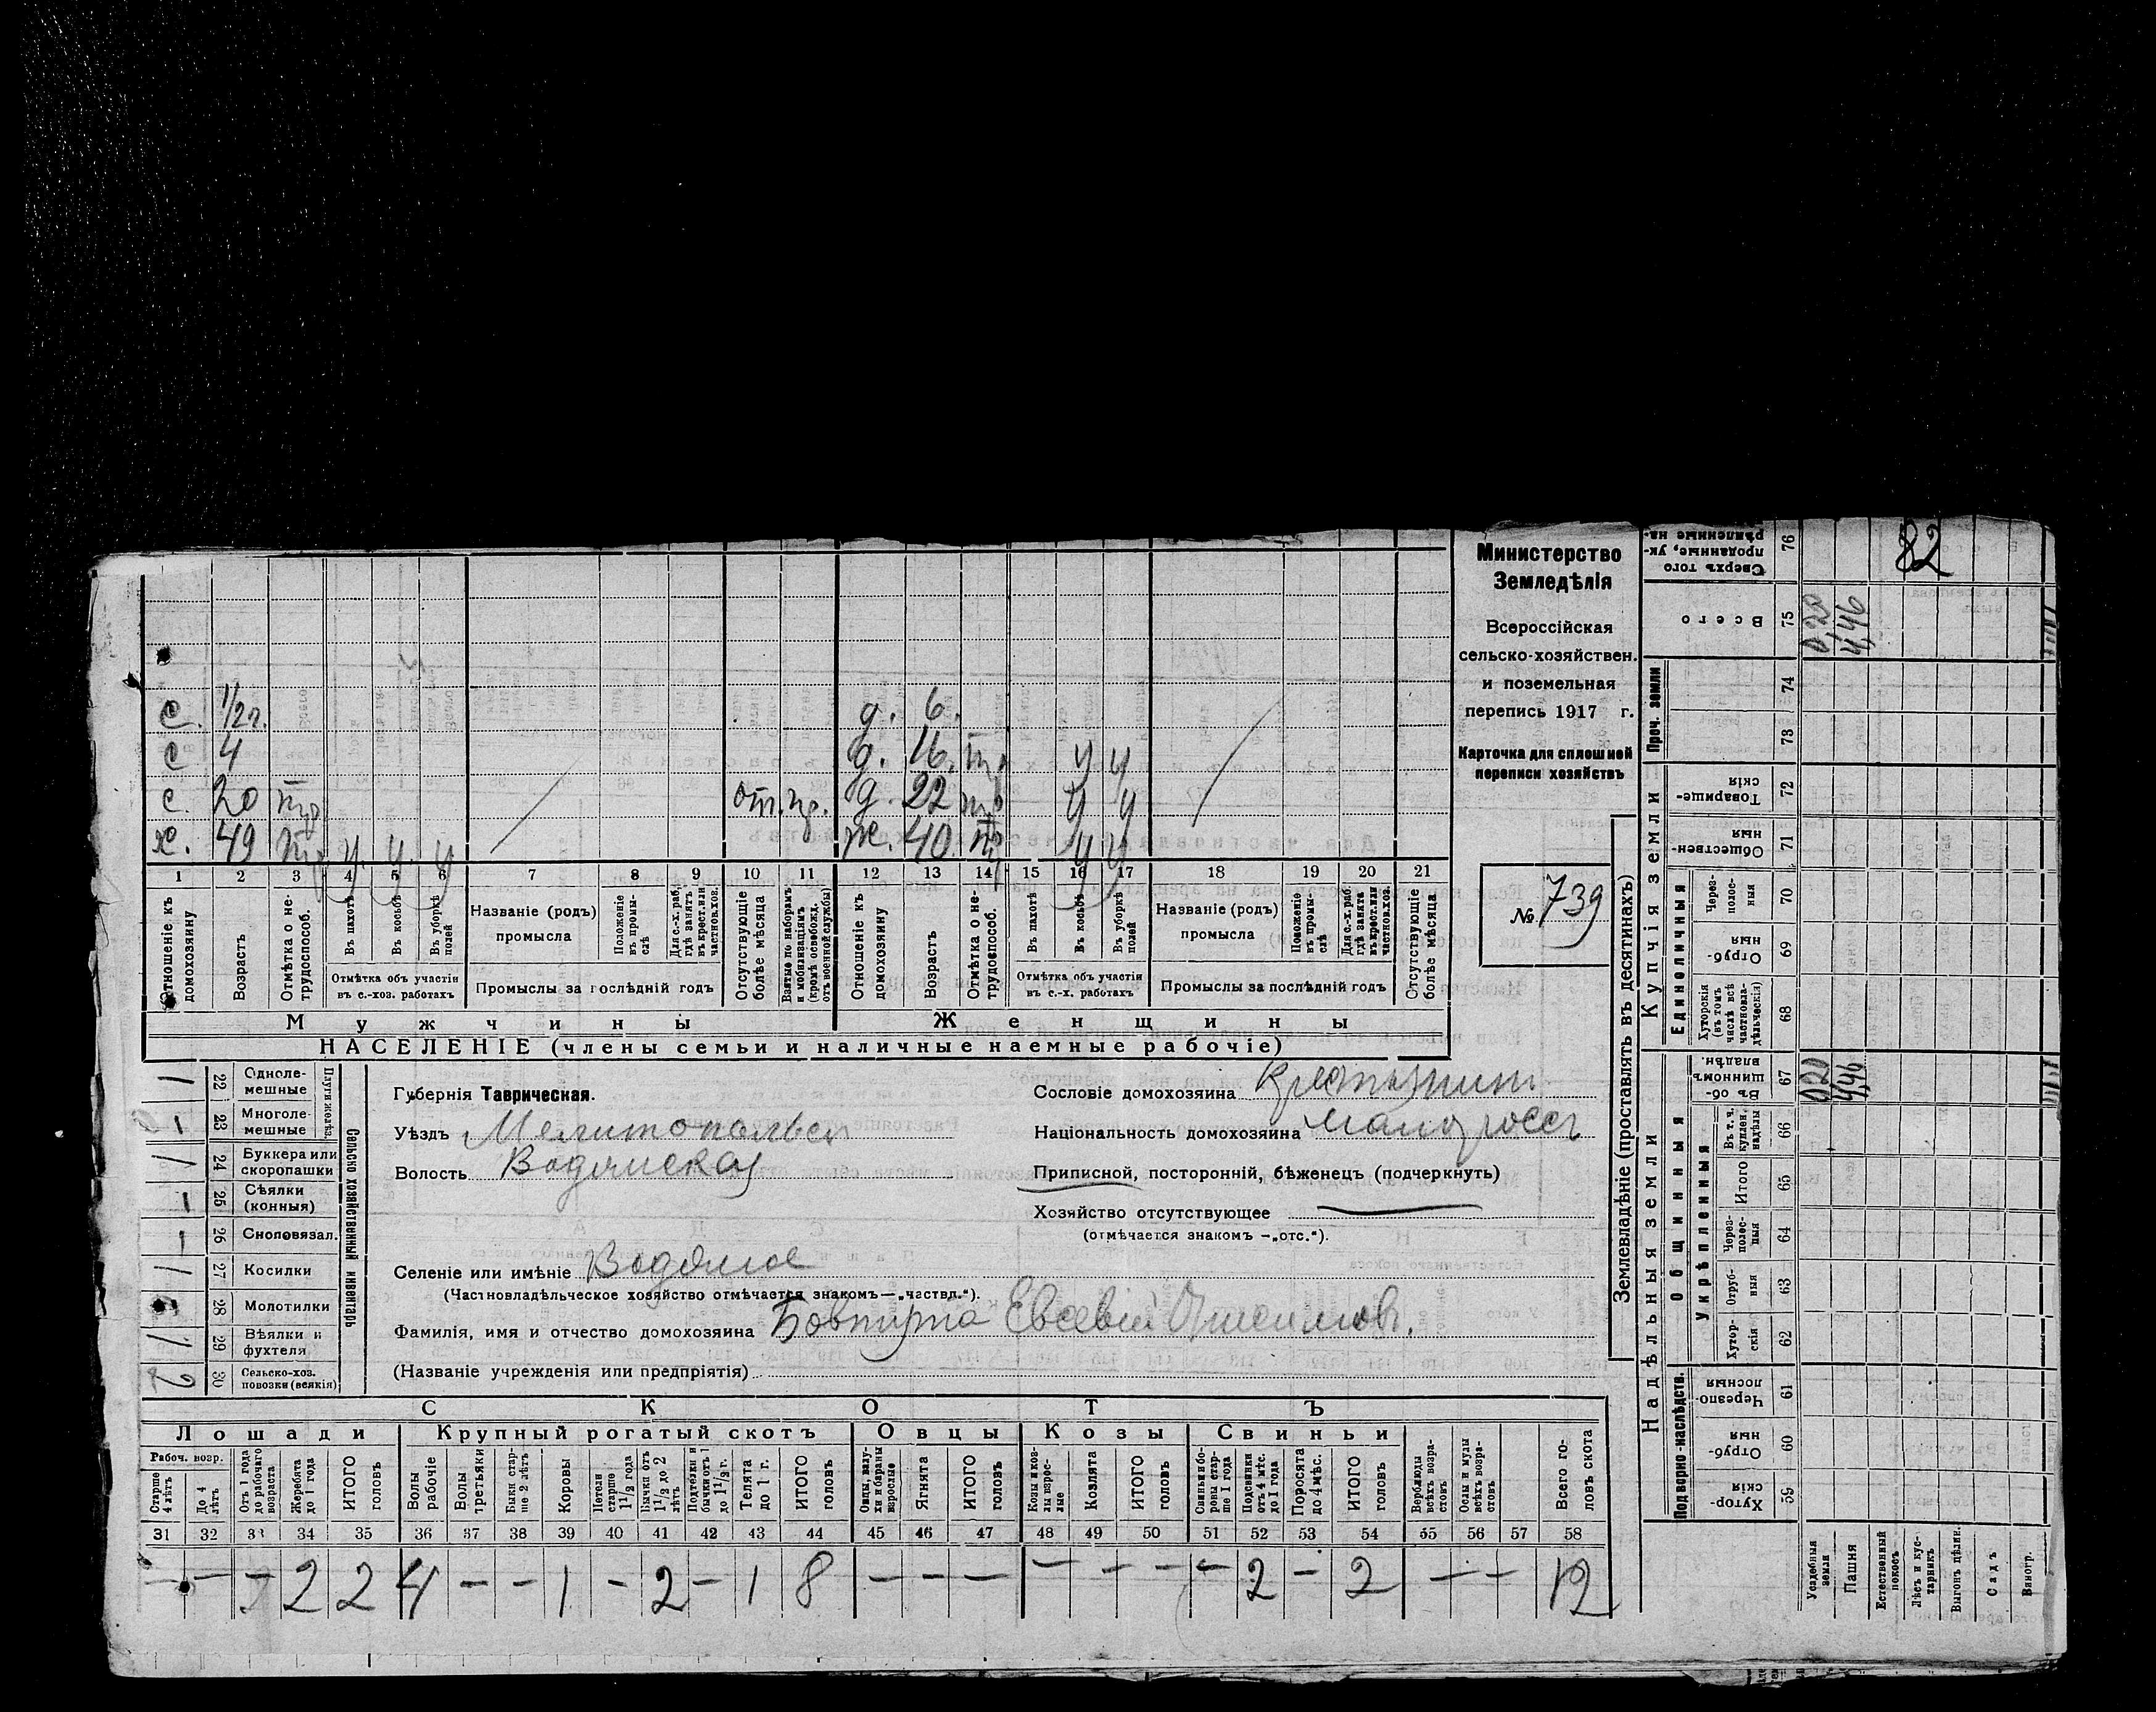 82
Министерство
Земледѣлія
Всероссійская
сельско-хозяйствен.
и поземельная
перепись 1917 г.
Карточка для сплошной
переписи хозяйствъ
№ 739
с. 1/2 г. д. 6.
с 4 д. 16. тр у у
с. 20 тр от. пр. д. 22 тр у у
х. 49 тр у у у ж. 40. тр у у
1 2 3 4 5 6 7 8 9 10 11 12 13 14 15 16 17 18 19 20 21
Отношеніе къ домохозяину
Возрастъ
Отмѣтка о не-трудоспособ.
Въ пахотѣ
Въ косьбѣ
Въ уборкѣ полей
Отмѣтка объ участіи
въ с.-хоз. работахъ
Названіе (родъ)
промысла
Положеніе въ промы-слѣ
Для с.-х. раб. гдѣ занятъ въ крест. или частнов. хоз.
Промыслы за послѣдній годъ
Отсутствующіе болѣе мѣсяца
Взятые по наборамъ и мобилизаціямъ (кромѣ освобожд. отъ военной службы)
Отношеніе къ домохозяину
Возрастъ
Отмѣтка о не-трудоспособ.
Въ пахотѣ
Въ косьбѣ
Въ уборкѣ полей
Отмѣтка объ участіи
въ с.-х. работахъ
Названіе (родъ)
промысла
Положеніе въ промы-слѣ
Для с.-х. раб. гдѣ занята въ крест. или частнов. хоз.
Промыслы за послѣдній годъ
Отсутствующіе болѣе мѣсяца
Мужчины Женщины
НАСЕЛЕНІЕ (члены семьи и наличные наемные рабочіе)
Сельско-хозяйственный инвентарь
Плуги желѣз.
22 Одноле-мешные
23 Многоле-мешные
24 Буккера или скоропашки
25 Сѣялки (конныя)
26 Сноповязал.
27 Косилки
28 Молотилки
29 Вѣялки и фухтеля
30 Сельско-хоз. повозки (всякія) 2
Губернія Таврическая.
Уѣздъ Мелитопольск
Волость Водянская
Сословіе домохозяина Крестьянин
Національность домохозяина Малоросс
Приписной, посторонній, бѣженецъ (подчеркнуть)
Хозяйство отсутствующее
(отмѣчается знакомъ —„отс.“).
Селеніе или имѣніе Водяное
(Частновладѣльческое хозяйство отмѣчается знакомъ—„частвл.“).
Фамилія, имя и отчество домохозяина Бовтута Евсевій
(Названіе учрежденія или предпріятія)
СКОТЪ
Лошади Крупный рогатый скотъ Овцы Козы Свиньи
Рабоч. возр.
Старше 4 лѣтъ
До 4 лѣтъ
Отъ 1 года до рабочаго возраста
Жеребята до 1 года
ИТОГО головъ
Волы рабочіе
Волы третьяки
Быки стар-ше 2 лѣтъ
Коровы
Нетели старше 1 1/2 года
Бычки отъ 1 1/2 до 2 лѣтъ
Подтелки и бычки отъ 1 до 1 1/2 г.
Телята до 1 г.
ИТОГО головъ
Овцы, валу-хи и бараны взрослые
Ягнята
ИТОГО головъ
Козы и коз-лы взрос-лые
Козлята
ИТОГО головъ
Свиньи и бо-ровы стар-ше 1 года
Подсвинки отъ 4 мѣс. до 1 года
Поросята до 4 мѣс.
ИТОГО головъ
Верблюды всѣхъ возра-стовъ
Ослы и мулы всѣхъ возра-стовъ
Всего го-ловъ скота
31 32 33 34 35 36 37 38 39 40 41 42 43 44 45 46 47 48 49 50 51 52 53 54 55 56 57 58
— — — 2 2 4 — — 1 — 2 — 1 8 — — — — — — — 2 — 2 — — 12
Землевладѣніе (проставлять въ десятинахъ)
Надѣльныя земли
Купчія земли
Подворно-наслѣдств.
Общинныя
Укрѣпленныя
Единоличныя
Проч. земли
Хутор-скія 59
Отруб-ныя 60
Черезпо-лосныя 61
Хутор-скія 62
Отруб-ныя 63
Через-полос-ныя 64
Итого 65
Въ т. ч. куплен. надѣлы 66
Въ об-щинномъ владѣн. 67 0,20 4,46
Хуторскія (въ томъ числѣ всѣ частновла-дѣльческія) 68
Отруб-ныя 69
Через-полос-ныя 70
Обществен-ныя 71
Товарище-скія 72
73
74
Всего 75 0,20 4,46
Сверхъ того проданные, ук-рѣпленные на- 76
Усадебныя земли
Пашня
Естественный покосъ
Лѣсъ и кус-тарникъ
Выгонъ цѣлин.
Садъ
Виногр.